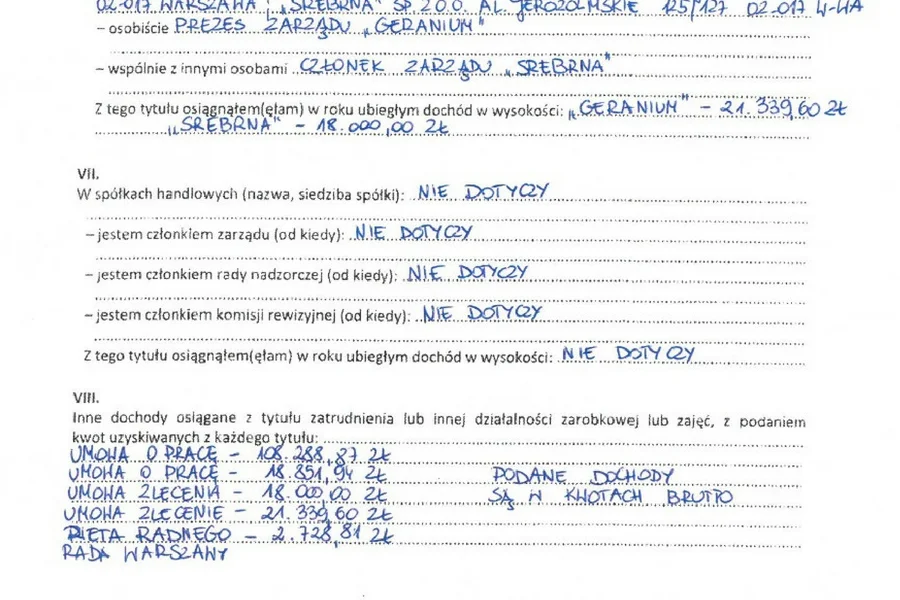 02-017 WARSZAWA; „SREBRNA" SP. Z O.O. AL. JEROZOLIMSKIE 125/127 02-017 W-WA
– osobiście PREZES ZARZĄDU „GERANIUM"
– wspólnie z innymi osobami CZŁONEK ZARZĄDU „SREBRNA"
Z tego tytułu osiągnąłem(ęłam) w roku ubiegłym dochód w wysokości: „GERANIUM" – 21.339,60 ZŁ
„SREBRNA" – 18.000,00 ZŁ
VII.
W spółkach handlowych (nazwa, siedziba spółki): NIE DOTYCZY
– jestem członkiem zarządu (od kiedy): NIE DOTYCZY
– jestem członkiem rady nadzorczej (od kiedy): NIE DOTYCZY
– jestem członkiem komisji rewizyjnej (od kiedy): NIE DOTYCZY
Z tego tytułu osiągnąłem(ęłam) w roku ubiegłym dochód w wysokości: NIE DOTYCZY
VIII.
Inne dochody osiągane z tytułu zatrudnienia lub innej działalności zarobkowej lub zajęć, z podaniem
kwot uzyskiwanych z każdego tytułu:
UMOWA O PRACĘ – 108.288,87 ZŁ
UMOWA O PRACĘ – 18.851,94 ZŁ PODANE DOCHODY
UMOWA ZLECENIA – 18.000,00 ZŁ SĄ W KWOTACH BRUTTO
UMOWA ZLECENIE – 21.339,60 ZŁ
DIETA RADNEGO – 2.728,81 ZŁ
RADA WARSZAWY